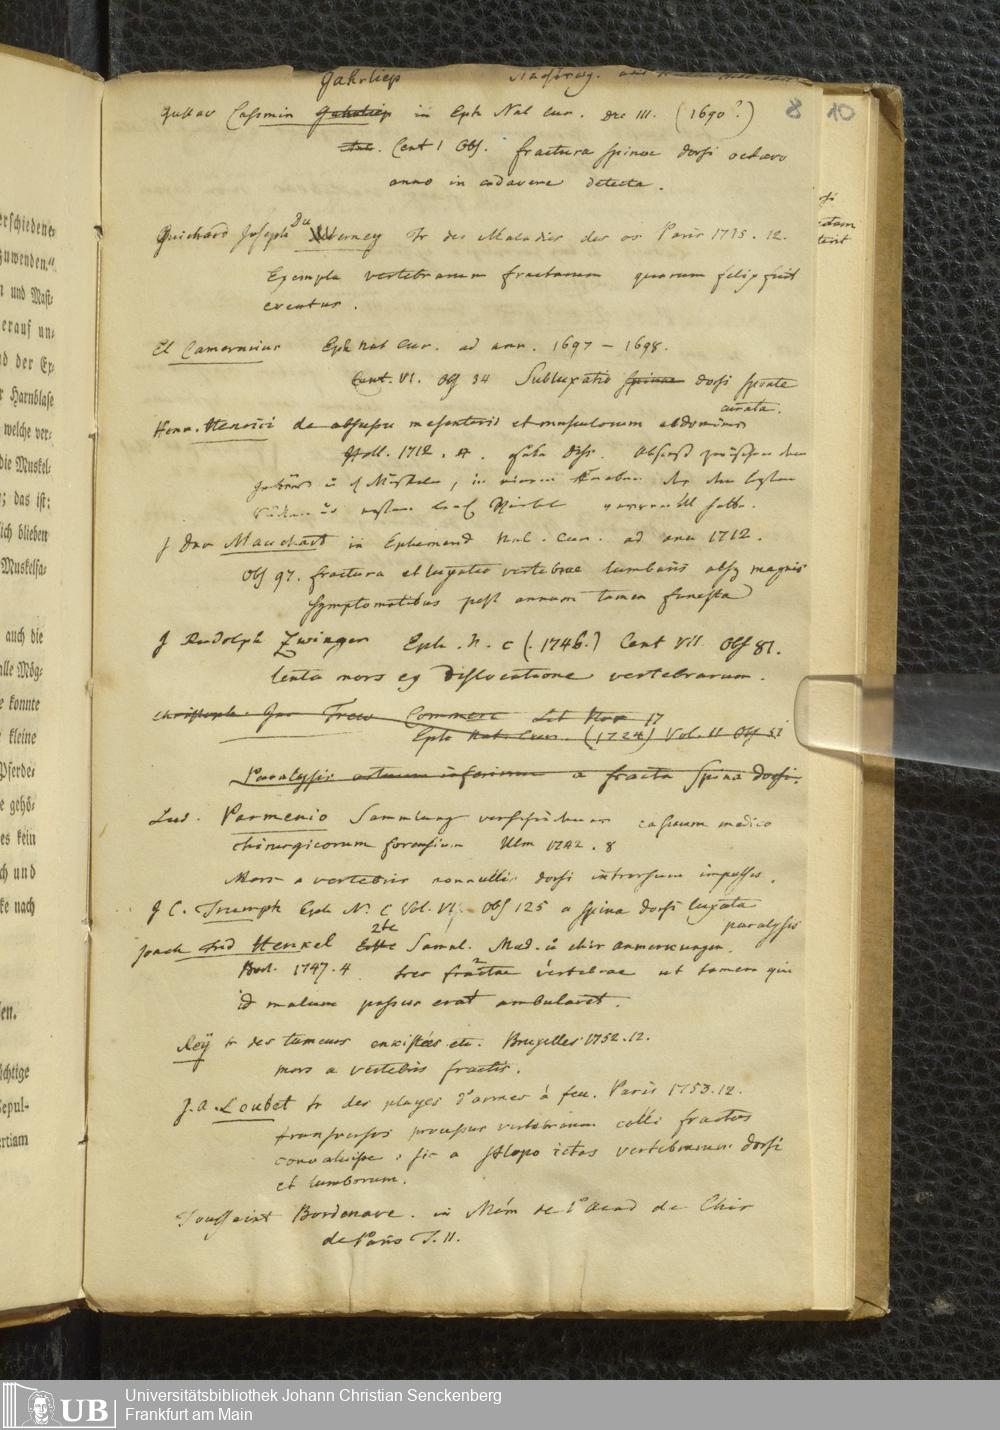 Gahrliep
Gustav Casimir Gahrliep in Eph Nat cur. dec III. (1690?)
Cent 1 Obs. fractura spinae dorsi octavo
anno in cadavere detecta.
8 10
Guichard Joseph Du Verney tr des Maladies des os Paris 1715. 12.
Exempla vertebrarum fractarum quarum felix fuit
eventus.
El Camerarius Eph Nat Cur. ad ann. 1697 – 1698.
Cent. VI. Obs 34 Subluxatio spinae dorsi sponte
curata.
Henr. Henrici de abscessu mesenterii et musculorum abdominis
Hall. 1712. 4.
J Dav Mauchart in Ephemerid Nat. Cur. ad ann 1712.
Obs 97. fractura et luxatio vertebrae lumbaris absq magnis
symptomatibus post annum tamen funesta
J Rudolph Zwinger Eph. N. C (1746.) Cent VII. Obs 81.
lenta mors ex dislocatione vertebrarum.
Christoph. Jac Trew Commerc Lit Nor 17
Eph Nat. Cur. (1724) Vol. II Obs
Paralysis artuum inferiorum a fracta Spina dorsi.
Lud. Parmenio Sammlung verschiedener casuum medico
chirurgicorum forensium Ulm 1742. 8
Mors a vertebris nonnullis dorsi introrsum impulsis.
J C. Trumph Eph N. C Vol. VI. Obs 125 a spina dorsi luxata
paralysis
Joach Frid Henkel 2te Samml. Med. u chir anmerkungen.
Berl. 1747. 4 tres fractae vertebrae ut tamen qui
id malum passus erat ambularet.
Rey tr des tumeurs enkistées etc. Bruxelles 1752. 12.
mors a vertebris fractis.
J. A. Loubet tr des playes d'armes à feu. Paris 1753. 12.
transversos processus vertebrarum colli fractos
convaluisse, sic a sclopo ictas vertebrarum dorsi
et lumborum.
Toussaint Bordenave. in Mém de l'Acad de Chir
de Paris T. II.
zuwenden."
n und Mast-
erauf un-
nd der Ex-
r Harnblase
welche ver-
die Muskel-
; das ist:
ich blieben
Muskelfa-
auch die
alle Mög-
e konnte
kleine
Pferde-
e gehö-
es kein
ch und
ke nach
en.
ichtige
epul-
ertiam
UB
Universitätsbibliothek Johann Christian Senckenberg
Frankfurt am Main